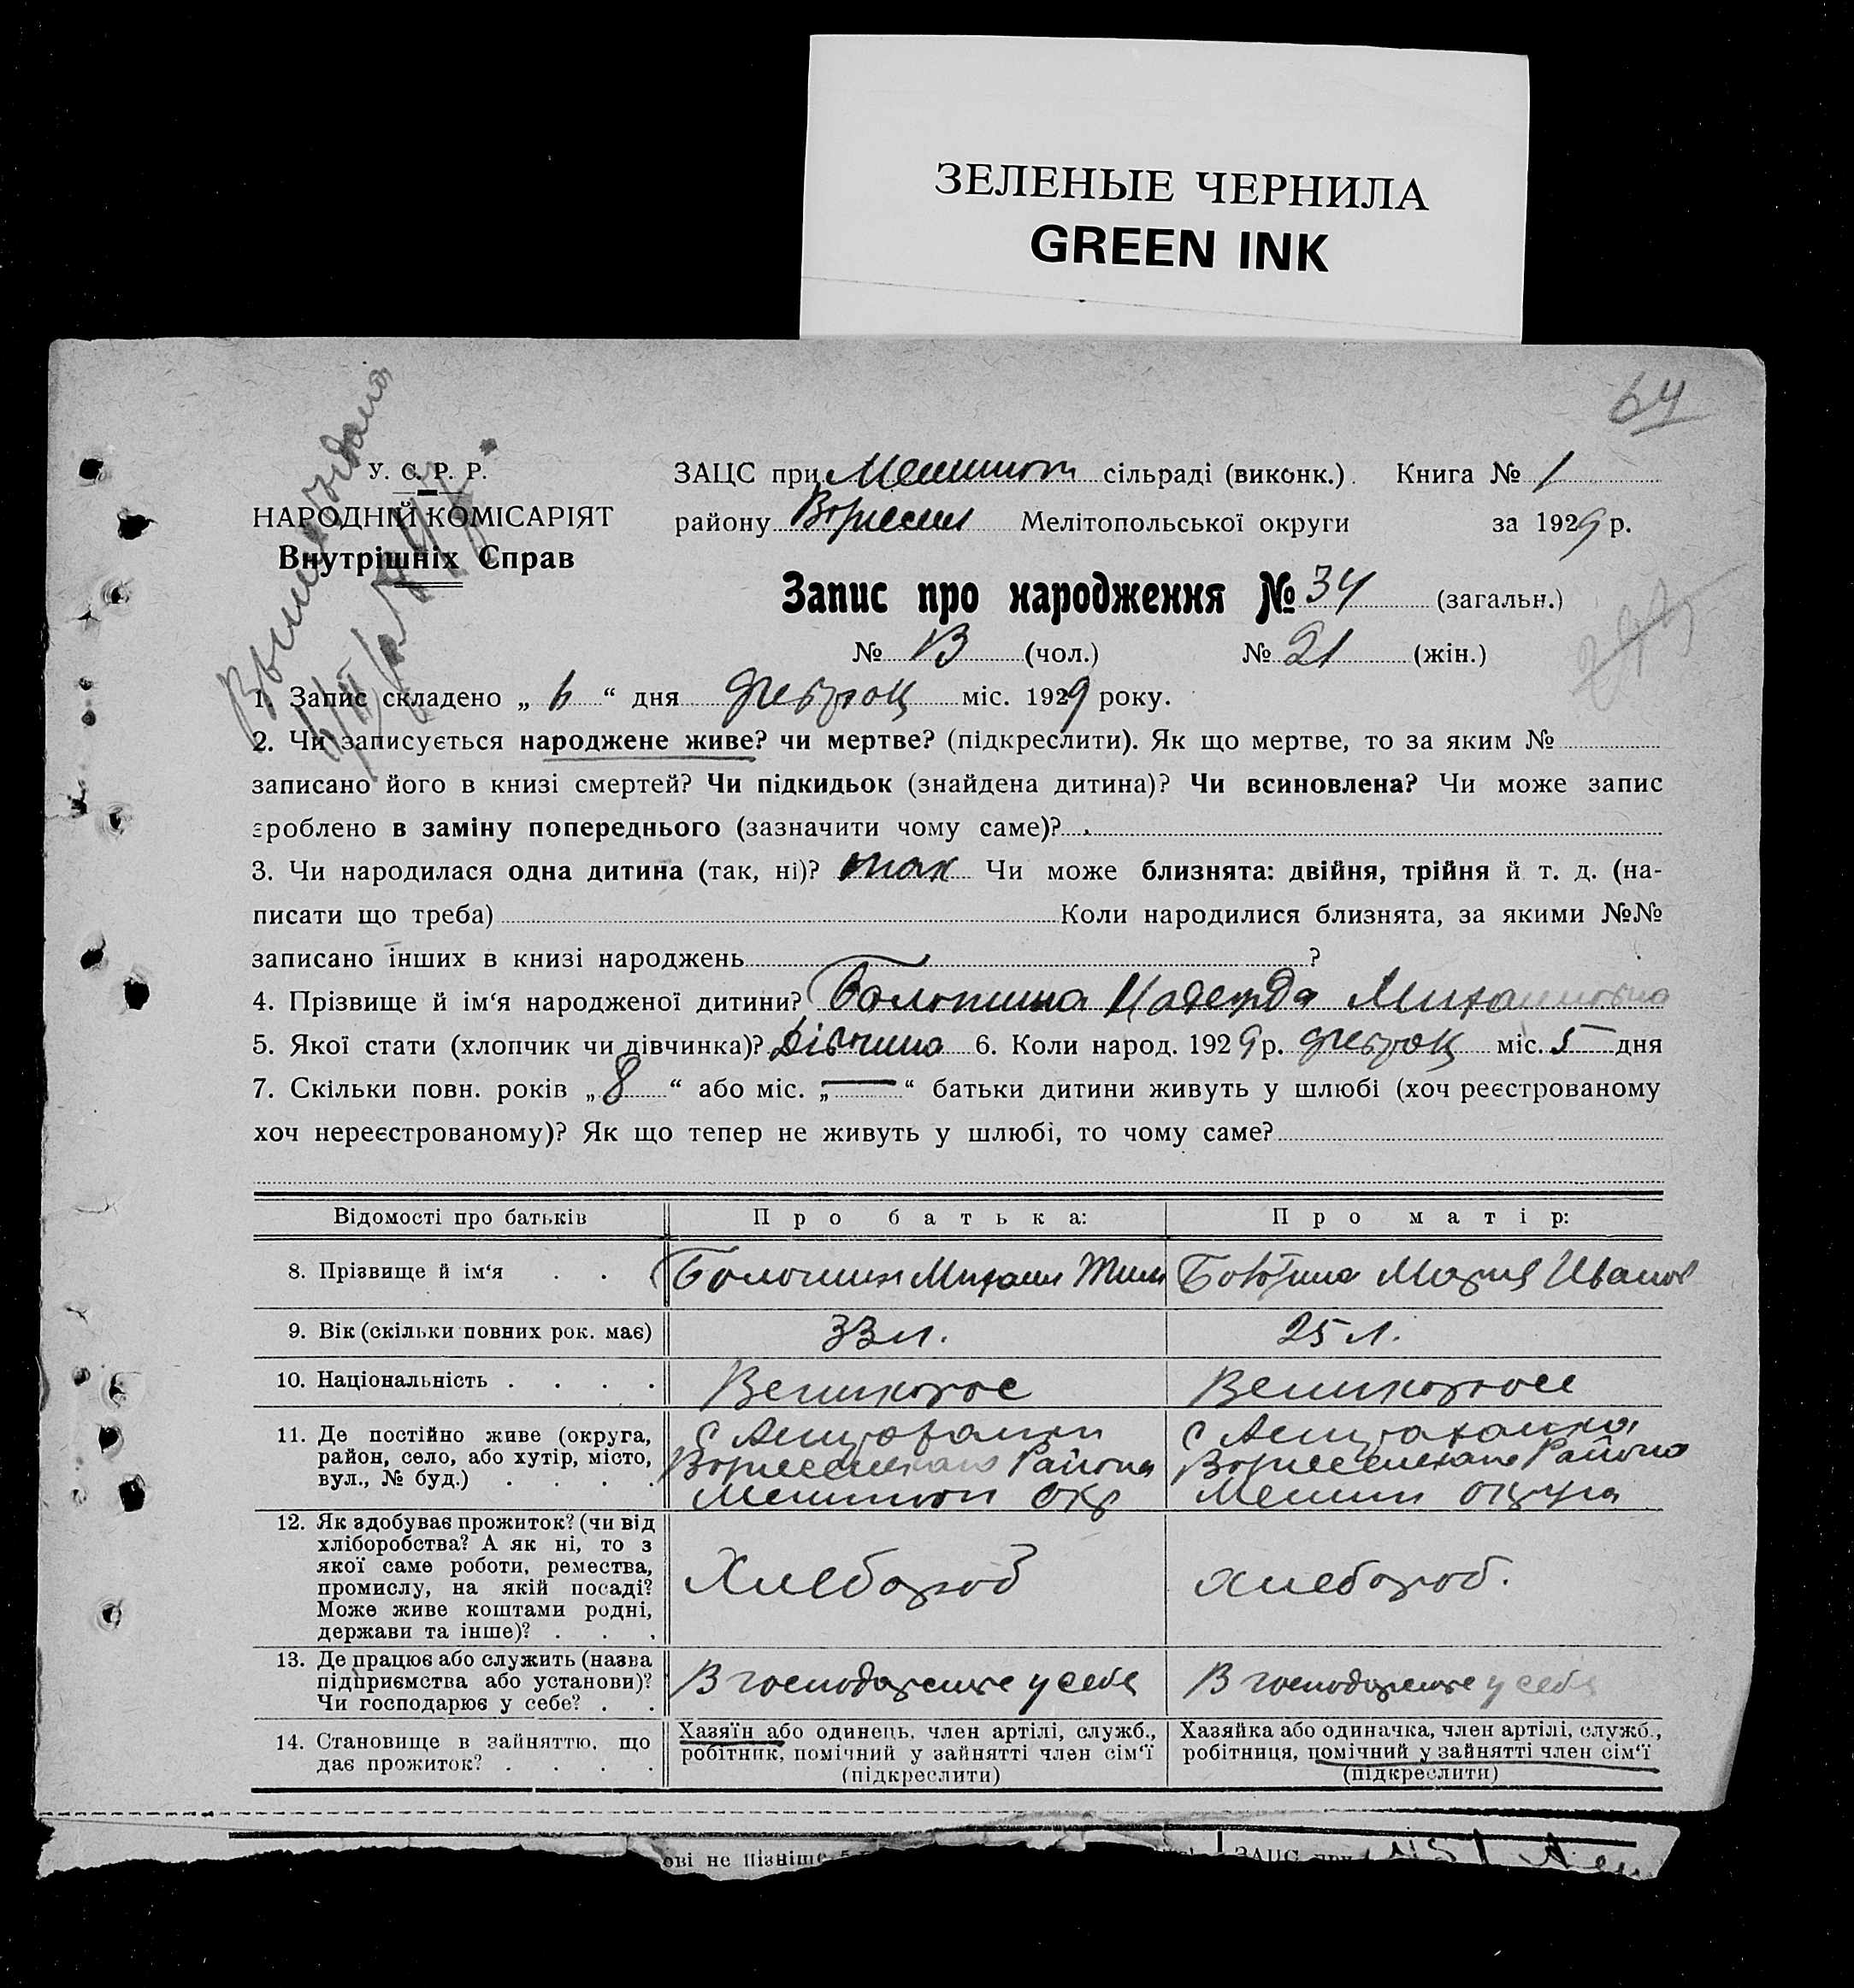 ЗЕЛЕНЫЕ ЧЕРНИЛА
GREEN INK
64
У. С. Р. Р.
НАРОДНІЙ КОМІСАРІЯТ
Внутрішніх Справ
ЗАЦС при сільраді (виконк.). Книга № 1
району Мелітопольської округи за 1929 р.
Запис про народження № 34 (загальн.)
№ 13 (чол.) № 21 (жін.)
1. Запис складено „ 6 “ дня міс. 1929 року.
2. Чи записується народжене живе? чи мертве? (підкреслити). Як що мертве, то за яким №
записано його в книзі смертей? Чи підкидьок (знайдена дитина)? Чи всиновлена? Чи може запис
зроблено в заміну попереднього (зазначити чому саме)?
3. Чи народилася одна дитина (так, ні)? так Чи може близнята: двійня, трійня й т. д. (на-
писати що треба) Коли народилися близнята, за якими №№
записано інших в книзі народжень ?
4. Прізвище й ім‘я народженої дитини? Болотина Надежда Михаиловна
5. Якої стати (хлопчик чи дівчинка)? Дівчина 6. Коли народ. 1929 р. міс. 5 дня
7. Скільки повн. років „ 8 “ або міс. „ — “ батьки дитини живуть у шлюбі (хоч реєстрованому
хоч нереєстрованому)? Як що тепер не живуть у шлюбі, то чому саме?
Відомості про батьків
Про батька:
Про матір:
8. Прізвище й ім‘я . .
Болотин Михаил
Мария Иванов
9. Вік (скільки повних рок. має)
33 л.
25 л.
10. Національність . . . .
Великорос
Великорос
11. Де постійно живе (округа,
район, село, або хутір, місто,
вул., № буд.) . . . .
с
Района
Окр
с
Района
12. Як здобуває прожиток? (чи від
хліборобства? А як ні, то з
якої саме роботи, ремества,
промислу, на якій посаді?
Може живе коштами родні,
держави та інше)? . . .
Хлебороб
хлебороб.
13. Де працює або служить (назва
підприємства або установи)?
Чи господарює у себе? . .
В у себе
В у себе
14. Становище в зайняттю, що
дає прожиток? . . . .
Хазяїн або одинець, член артілі, служб.,
робітник, помічний у зайнятті член сім‘ї
(підкреслити)
Хазяйка або одиначка, член артілі, служб.,
робітниця, помічний у зайнятті член сім‘ї
(підкреслити)
ові не пізніше
ЗАЦС при